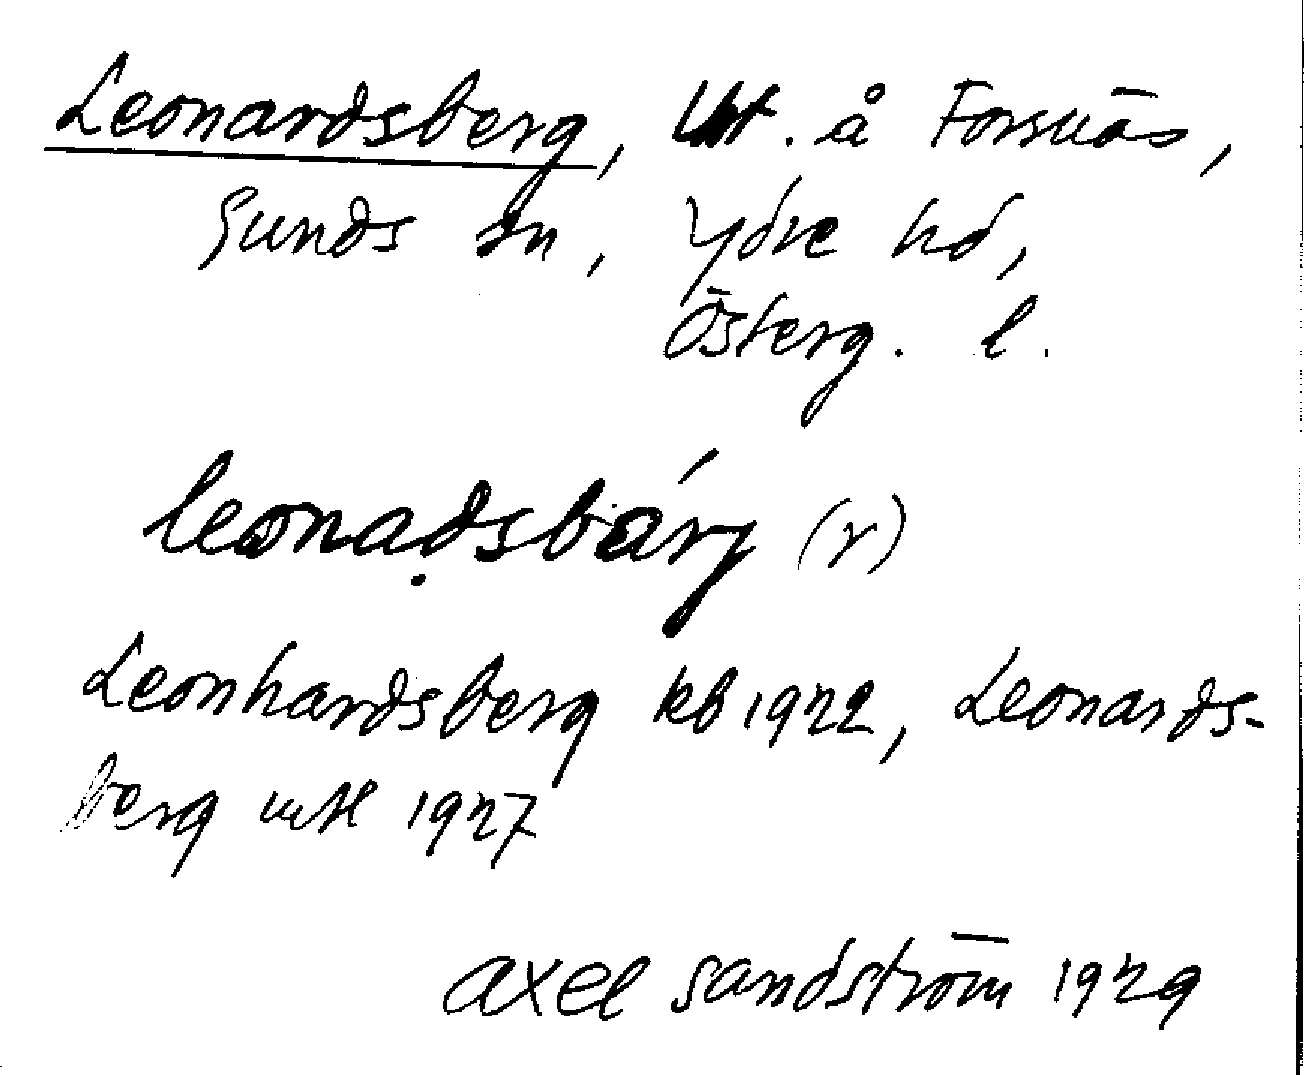 Leonardsberg, Utf. å Forsnäs,
Sunds sn, Ydre hd,
Österg. l.
leonadsbárj (r)
Leonhardsberg kb 1922, Leonards-
berg mtl 1927
Axel Sandström 1929